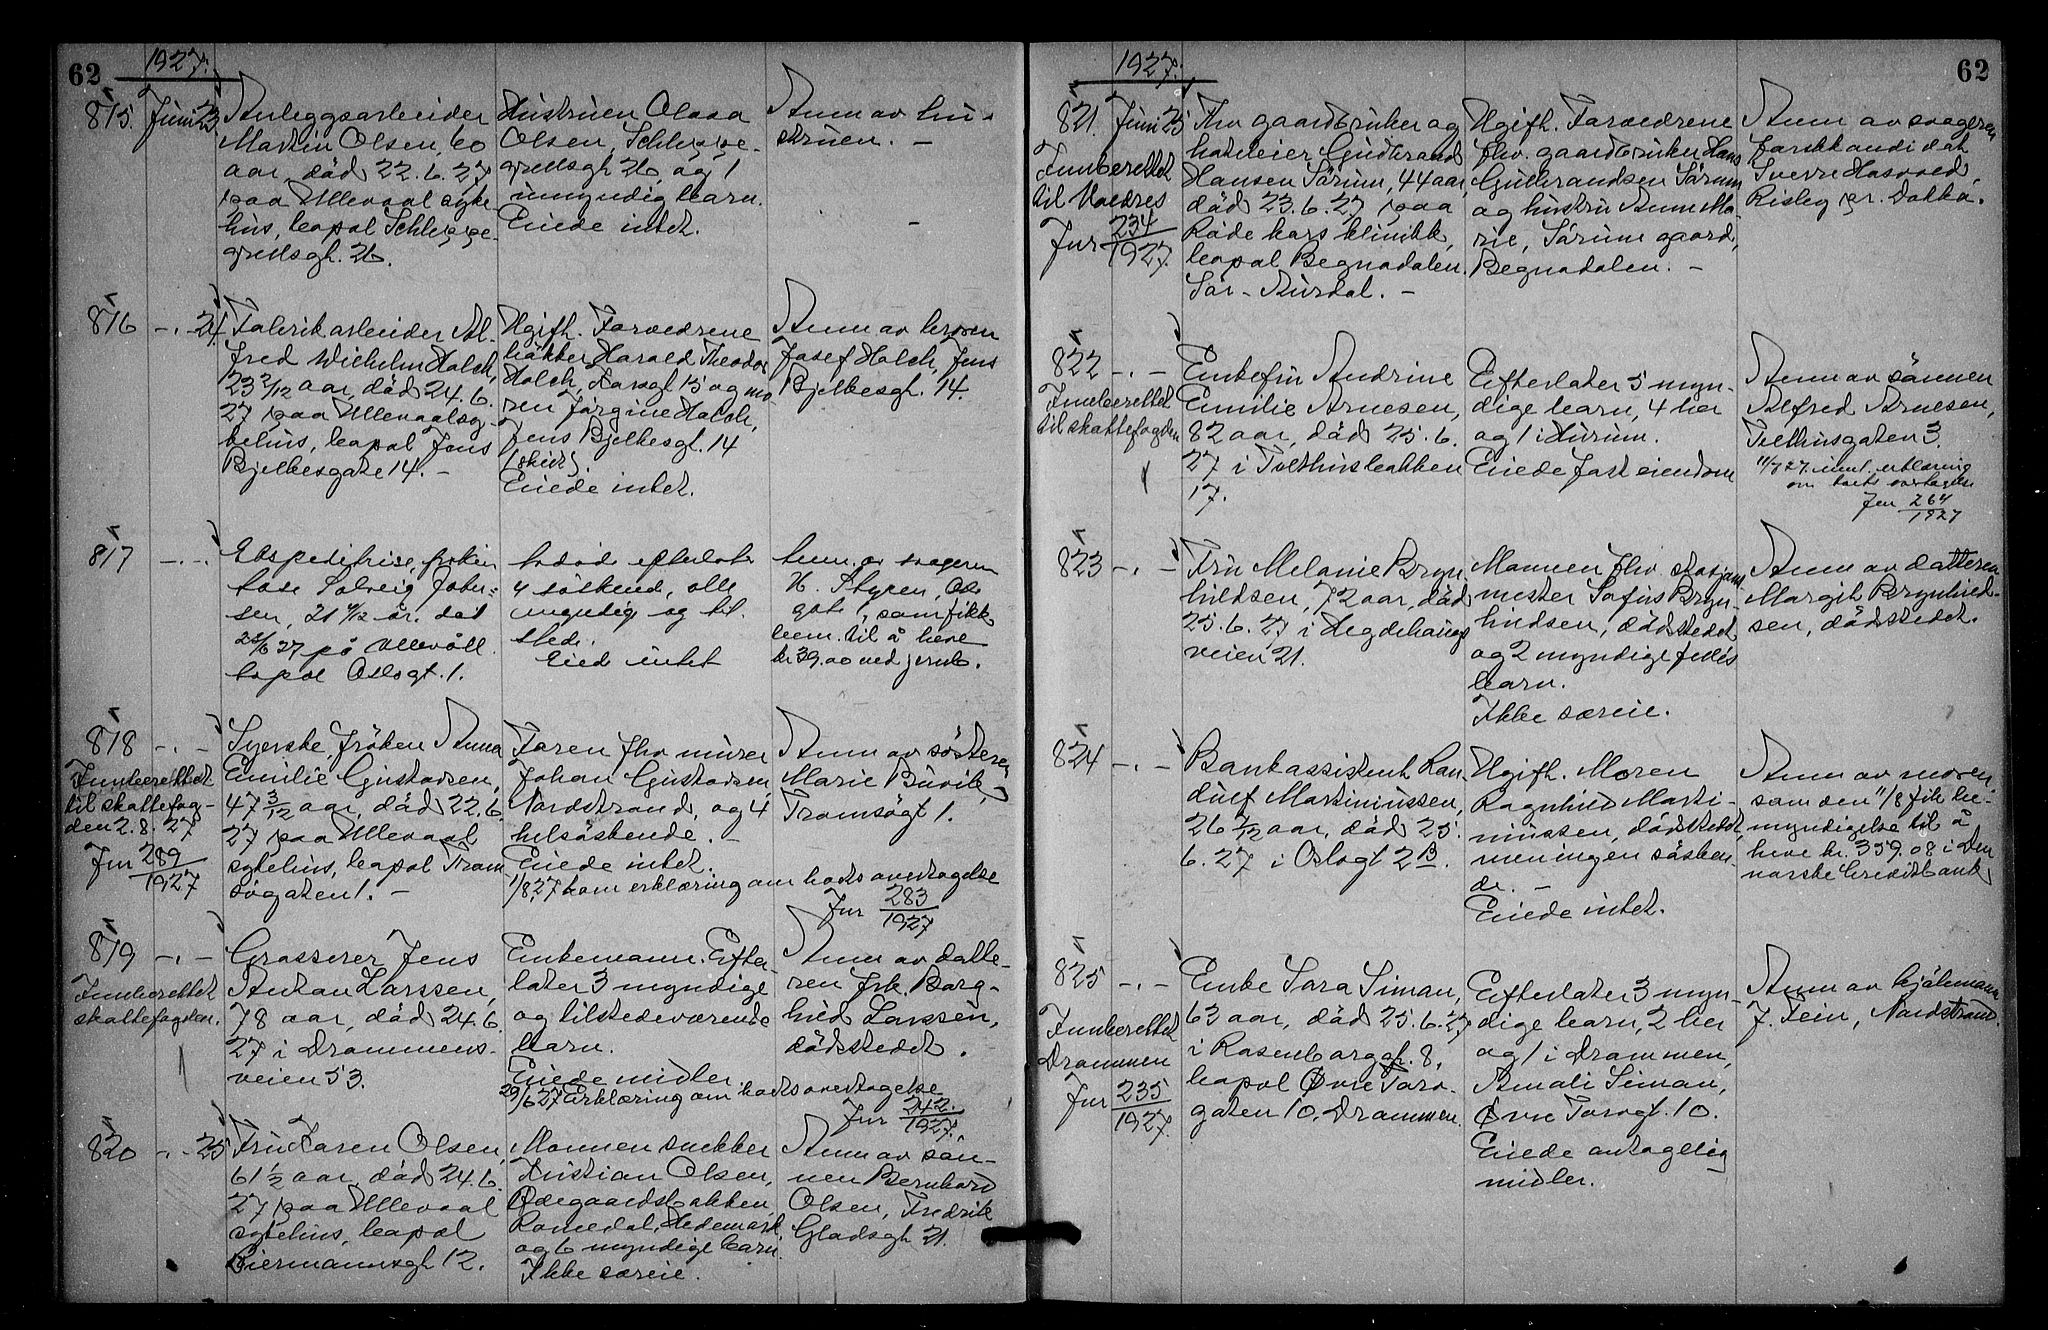 62
1927.
815. Juni 23
Anleggsarbeider
Martin Olsen, 60
aar, død 22.6.27
paa Ullevaal syke-
hus, bopæl Schleppe-
grellsgt. 26.
Hustruen Olava
Olsen, Schleppe-
grellsgt 26, og 1
umyndig barn.
Eiede intet.
Anm av hu-
struen. —
816 —.— 24
Fabrikarbeider Al-
fred Wilhelm Holch,
23 2/12 aar, død 24.6.
27 paa Ullevaal sy-
kehus, bopæl Jens
Bjelkesgate 14. —
Ugift. Forældrene
Harald Theodor
Holch, 15 og mo-
ren Jørgine Holch,
Jens Bjelkesgt. 14
(skilt).
Eiede intet.
Anm av broren
Josef Holch, Jens
Bjelkesgt. 14.
817 —.—
Ekspeditrise, frøken
Solveig Johan-
sen, 21 år. død
25/6 27 på Ullevål.
bopæl Oslogt. 1.
efterlater
4 søskend, alle
myndig og til
stede.
Eied intet
Anm. av svogeren
H. Styren, Oslo
gate 1, som fikk
bem. til å heve
kr 39,00 ved jernb.
818 —.—
Innberettet
til skattefog-
den 2.8.27
Jnr 289
1927
Syerske, frøken Anna
Emilie Gustavsen,
47 3/12 aar, død 22.6.
27 paa Ullevaal
sykehus, bopæl Trom
søgaten 1. —
Faren fhv murer
Johan Gustavsen
Nordstrand, og 4
helsøskende. —
Eiede intet.
1/8 27 kom erklæring om boets overtagelse
Jnr 283
1927
Anm av søsteren
Marie Buvik,
Tromsøgt 1.
819 —.—
Innberettet
skattefogden.
Grosserer Jens
Anton Larssen,
78 aar, død 24.6.
27 i Drammens-
veien 53.
Enkemann. Efter-
later 3 myndige
og tilstedeværende
barn.
Eiede midler.
29/6 27 Erklæring om boets overtagelse
Jnr 242.
1927.
Anm av datte-
ren frk. Borg-
hild Larssen,
dødsstedet.
820 —.— 25
Fru Karen Olsen,
61 1/2 aar, død 24.6.
27 paa Ullevaal
sykehus, bopæl
Biermannsgt 12.
Mannen snekker
Kristian Olsen,
Ødegaardsbakken,
Romedal, Hedemark,
og 6 myndige barn.
Ikke særeie.
Anm av søn-
nen Bernhard
Olsen, Fredrik
Gladsgt 21.
62
1927.
821. Juni 25
Innberettet
til Valdres
Jnr 234
1927.
Fhv gaardbruker og
hoteleier Gudbrand
Hansen Sørum, 44 aar,
død 23.6.27 paa
Røde kors klinikk,
bopæl Begnadalen.
Sør-Aurdal. —
Ugift. Forældrene
fhv. gaardbruker Hans
Gulbrandsen Sørum
og hustru Anne Ma-
rie, Sørum gaard,
Begnadalen. —
Anm av svogeren
forstkandidat
Sverre Hasvold,
Risley pr. Dokka.
822 —.—
Innberettet
til skattefogden
Enkefru Andrine
Emilie Arnesen,
82 aar, død 25.6.
27 i Tvethusbakken
17.
Efterlater 5 myn-
dige barn, 4 her
og 1 i Hurum.
Eiede fast eiendom
Anm av sønnen
Alfred Arnesen,
Tvethusgaten 3.
11/7 27. innl. erklæring
om boets overtagelse
Jnr 264
1927
823 —.—
Fru Melanie Bryn-
hildsen, 72 aar, død
25.6.27 i Hegdehaugs
veien 21.
Mannen fhv. stasjons
mester Sofus Bryn-
hildsen, dødsstedet
og 2 myndige felles
barn.
Ikke særeie.
Anm av datteren
Margit Brynhild-
sen, dødsstedet.
824 —.—
Bankassistent Ran-
dulf Martiniussen,
26 aar, død 25.
6.27 i Oslogt 2 B.
Ugift. Moren
Ragnhild Marti-
niussen, dødsstedet,
men ingen søsken-
de. —
Eiede intet.
Anm av moren
som den 11/8 fik be-
myndigelse til å
heve kr. 359.08 i Den
norske Creditbank
825 —.—
Innberettet
Drammen
Jnr 235
1927.
Enke Sara Siman,
63 aar, død 25.6.27
i Rosenborggt. 8,
bopæl Øvre Torv-
gaten 10, Drammen.
Efterlater 3 myn-
dige barn, 2 her
og 1 i Drammen,
Amali Siman,
Øvre Torvgt. 10.
Eiede antagelig
midler.
Anm av hjelpemann
J. Fein, Nordstrand.